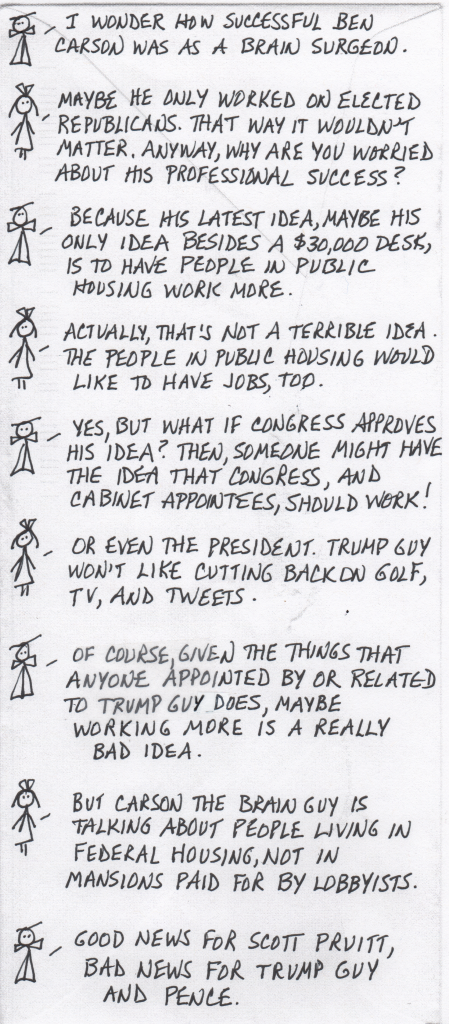 I WONDER HOW SUCCESSFUL BEN
CARSON WAS AS A BRAIN SURGEON.
MAYBE HE ONLY WORKED ON ELECTED
REPUBLICANS. THAT WAY IT WOULDN'T
MATTER. ANYWAY, WHY ARE YOU WORRIED
ABOUT HIS PROFESSIONAL SUCCESS?
BECAUSE HIS LATEST IDEA, MAYBE HIS
ONLY IDEA BESIDES A $30,000 DESK,
IS TO HAVE PEOPLE IN PUBLIC
HOUSING WORK MORE.
ACTUALLY, THAT'S NOT A TERRIBLE IDEA.
THE PEOPLE IN PUBLIC HOUSING WOULD
LIKE TO HAVE JOBS, TOO.
YES, BUT WHAT IF CONGRESS APPROVES
HIS IDEA? THEN, SOMEONE MIGHT HAVE
THE IDEA THAT CONGRESS, AND
CABINET APPOINTEES, SHOULD WORK!
OR EVEN THE PRESIDENT. TRUMP GUY
WON'T LIKE CUTTING BACK ON GOLF,
TV, AND TWEETS.
OF COURSE, GIVEN THE THINGS THAT
ANYONE APPOINTED BY OR RELATED
TO TRUMP GUY DOES, MAYBE
WORKING MORE IS A REALLY
BAD IDEA.
BUT CARSON THE BRAIN GUY IS
TALKING ABOUT PEOPLE LIVING IN
FEDERAL HOUSING, NOT IN
MANSIONS PAID FOR BY LOBBYISTS.
GOOD NEWS FOR SCOTT PRUITT,
BAD NEWS FOR TRUMP GUY
AND PENCE.